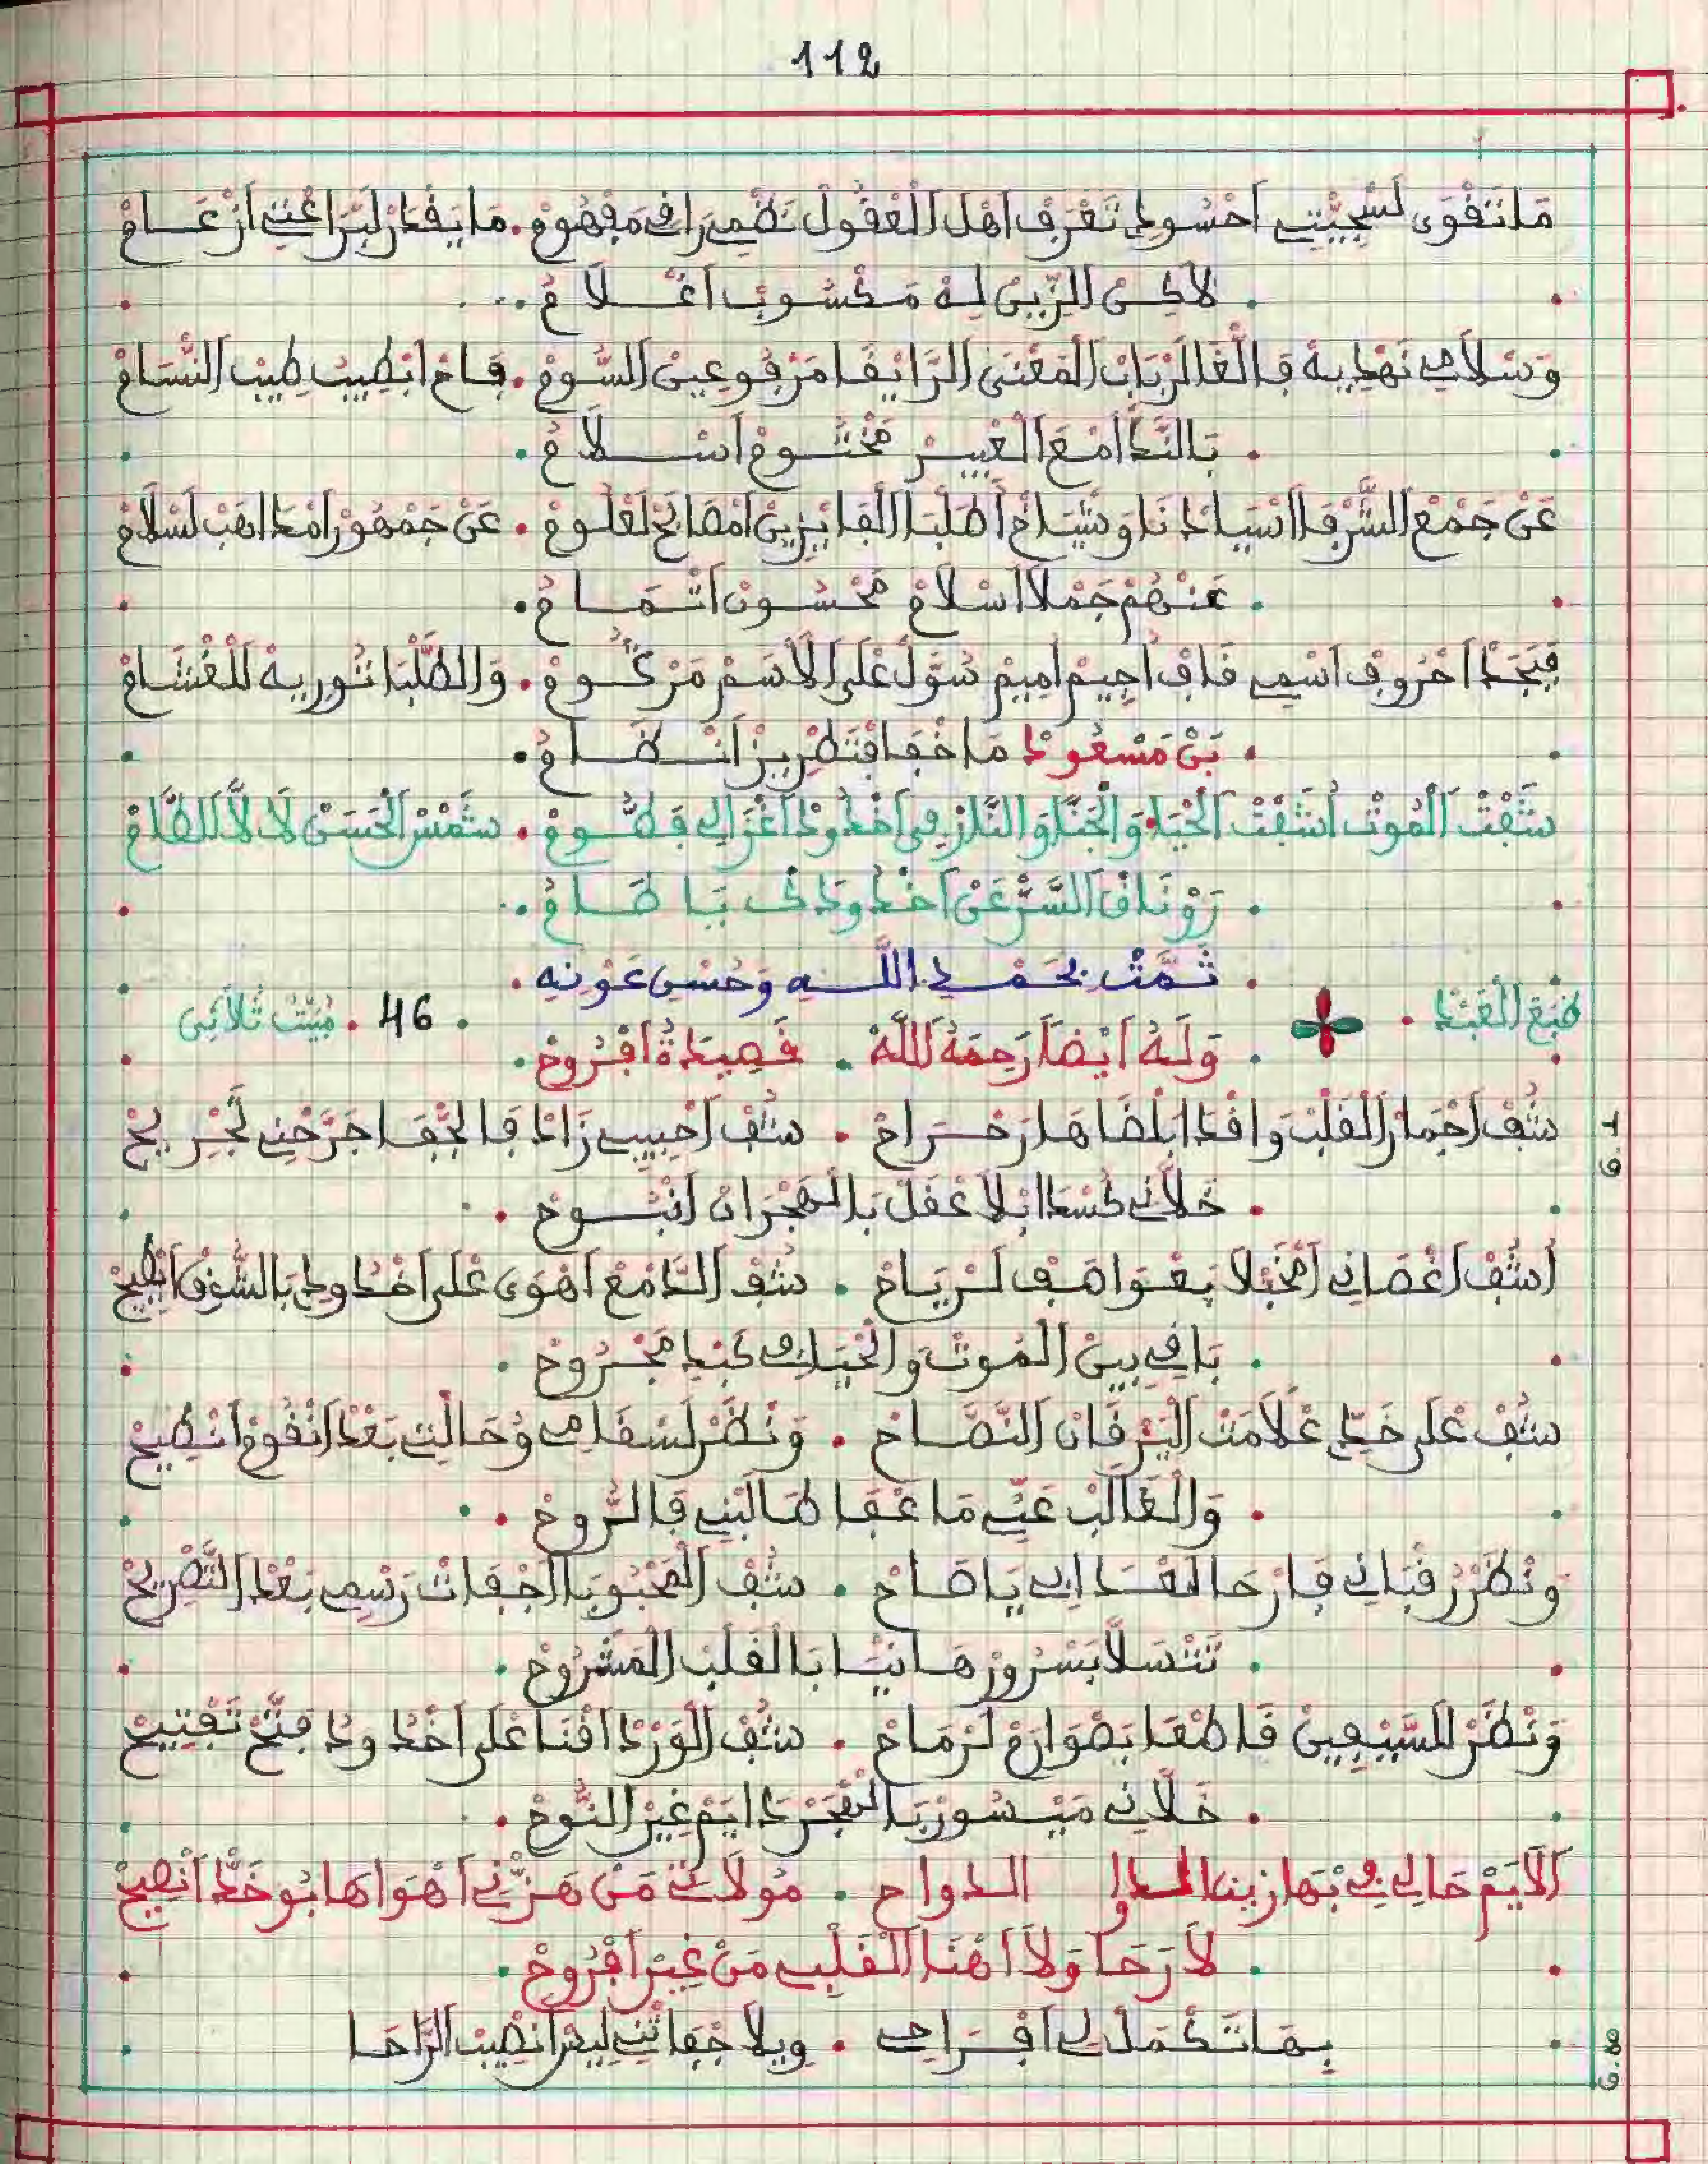 112
مَا تَقْوَى لَسْجِيّْتِي احْسُودِي تَعْرَفْ اهْلَ الْعْقُولْ نَظْمِي رَاقِي مَفْهُومْ . مَا يَقْدَرْ لَبْرَاعْتِي ازْعَـامْ
. لَاكِنْ الزّْبِنْ لِهْ مَكْسُوبْ اغْـلَامُ .
وَسْلَامِي نَهْدِيهْ فَالْغَا لَرْبَابْ الْمَعْنَى الرَّايْقَا مَرْفُوعِينْ السُّومْ . فَاحْ ابْطِيبْ طِيبْ النّْسَامْ
. بَالنَّدْ امْعَ الْعْبِيـرْ مَخْتُومْ اسْـلَامُ .
عَنْ جَمْعْ الشُّرْفَا اسْيَادْنَا وَشْيَاخْ اطَلْبَا الْفَايْزِينْ امْصَابْحْ لَعْلُومْ . عَنْ جَمْهُورْ امْدَاهَبْ لَسْلَامْ
. عَنْهُمْ جَمْلَا اسْلَامْ مَحْسُونْ اتْمَـامُ .
فَبْجَدْ احْرُوفْ اسْمِي قَافْ اجِيمْ امِيمْ سُوّلْ عْلَى الَاسَمْ مَرْكُـومْ . وَالطَّلْبَا تُورِيهْ لَلْغْشَـامْ
. بَنْ مَسْعُودْ مَا خْفَا فْتَطْرِيزْ انْـظَـامُ .
شَفْتْ الْمُوتْ اشَفْتْ الْحْيَا وَالْجَنَّا وَالنَّارْ فِي اخْدُودْ اغْزَالِي فَطُّـومْ . شَمْسْ الْحَسَنْ لَالَّا الطَّامْ
. رَوْنَاقْ السَّرّْ عَنْ اخْدُودَكْ يَا طَـامُ .
. تَمَّتْ بِحَمْـدِ اللَّـهِ وَحُسْنِ عَوْنِهِ .
طَبْعْ الْغَبْنَا . . 46 . مْبَيّتْ ثُلَاثِي
. وَلَهُ أَيْضًا رَحِمَهُ اللَّهْ . قَصِيدَةُ افْرُوحْ .
ق.1 شُفْ اجْمَارْ الْقَلْبْ وَاقْدَا ابْلْضَاهَا رَحْـرَاحْ . شُفْ احْبِيبِي زَادْ فَالْجْفَا جَرَّحْنِي تَجْـرِيحْ
. خَلَّانِي كَسْدَا ابْلَا عْقَلْ بَالْهَجْرَانْ انْبُـوحْ .
أَشُفْ اغْصَانِي امْخَبْلَا بَعْوَاصَفْ لَـرْيَـاحْ . شُفْ الدَّامَعْ اهْوَى عْلَى اخْدُودِي بَالشُّوقْ ايْطِيحْ
. بَاقِي بِينْ الْمُوتْ وَالْحْيَا لِي كَبْدَا مَجْـرُوحْ .
شُفْ عْلَى خَدِّي عْلَامَتْ الْيَـرْقَانْ النَّصَّـاحْ . وَنْظَرْ لَسْقَامِي وُحَالْتِي بَعْدْ انْقُومْ انْـطِيحْ
. وَالْغَالَبْ عَنِّي مَا عْفَا طَـالَبْنِي فَالـرُّوحْ .
وَنْظَرْ رُقْبَانِي فَارْحَا الْعْـدَا ابِيَ يَا صَـاحْ . شُفْ الْمَحْبُوبَا اجْفَاتْ رَسْمِي بَعْدْ التَّصْرِيحْ
. تَتْسَلَّا بَسْرُورْ هَـانْيَـا بَالْقَلْبْ الْمَشْرُوحْ .
وَنْظَرْ لَلسَّيْفِينْ قَاطْعَا بَصْوَارَمْ لَرْمَاحْ . شُفْ الْوَرْدْ افْنَا عْلَى اخْدُودْ فَتَّحْ تَفْتِيـحْ
. خَلَّانِي مَيْـسُورْ بَالْهْجَرْ دَايَمْ غِيرْ النُّوحْ .
الَايَمْ حَالِي فِي بْهَا زِينْ الدواح . مُولَاتِي مَنْ هَـزّْنِي اهْوَاهَا بُوخَدّْ انْصِيحْ
. لَا رَحَا وَلَا اهْنَا الْقَلْبِي مَنْ غِيرْ افْرُوحْ .
ق.8 . بِهَا تَـكْمَلْ لِي افْـرَاحِي . وِيلَا جْفَاتْنِي لِيعْرْ انْصِيبْ الرَّاحَـا